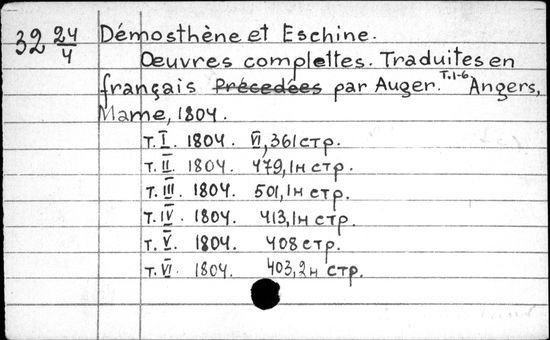 32 24/4 Démosthène et Eschine.
Œuvres complettes. Traduites en
français ~~Précedées~~ par Auger. T.1-6 Angers,
Mame, 1804.
т. I. 1804. VI, 361 стр.
т. II. 1804. 479, 1н стр.
т. III. 1804. 501, 1н стр.
т. IV. 1804. 413, 1н стр.
т. V. 1804. 408 стр.
т. VI. 1804. 403, 2н стр.